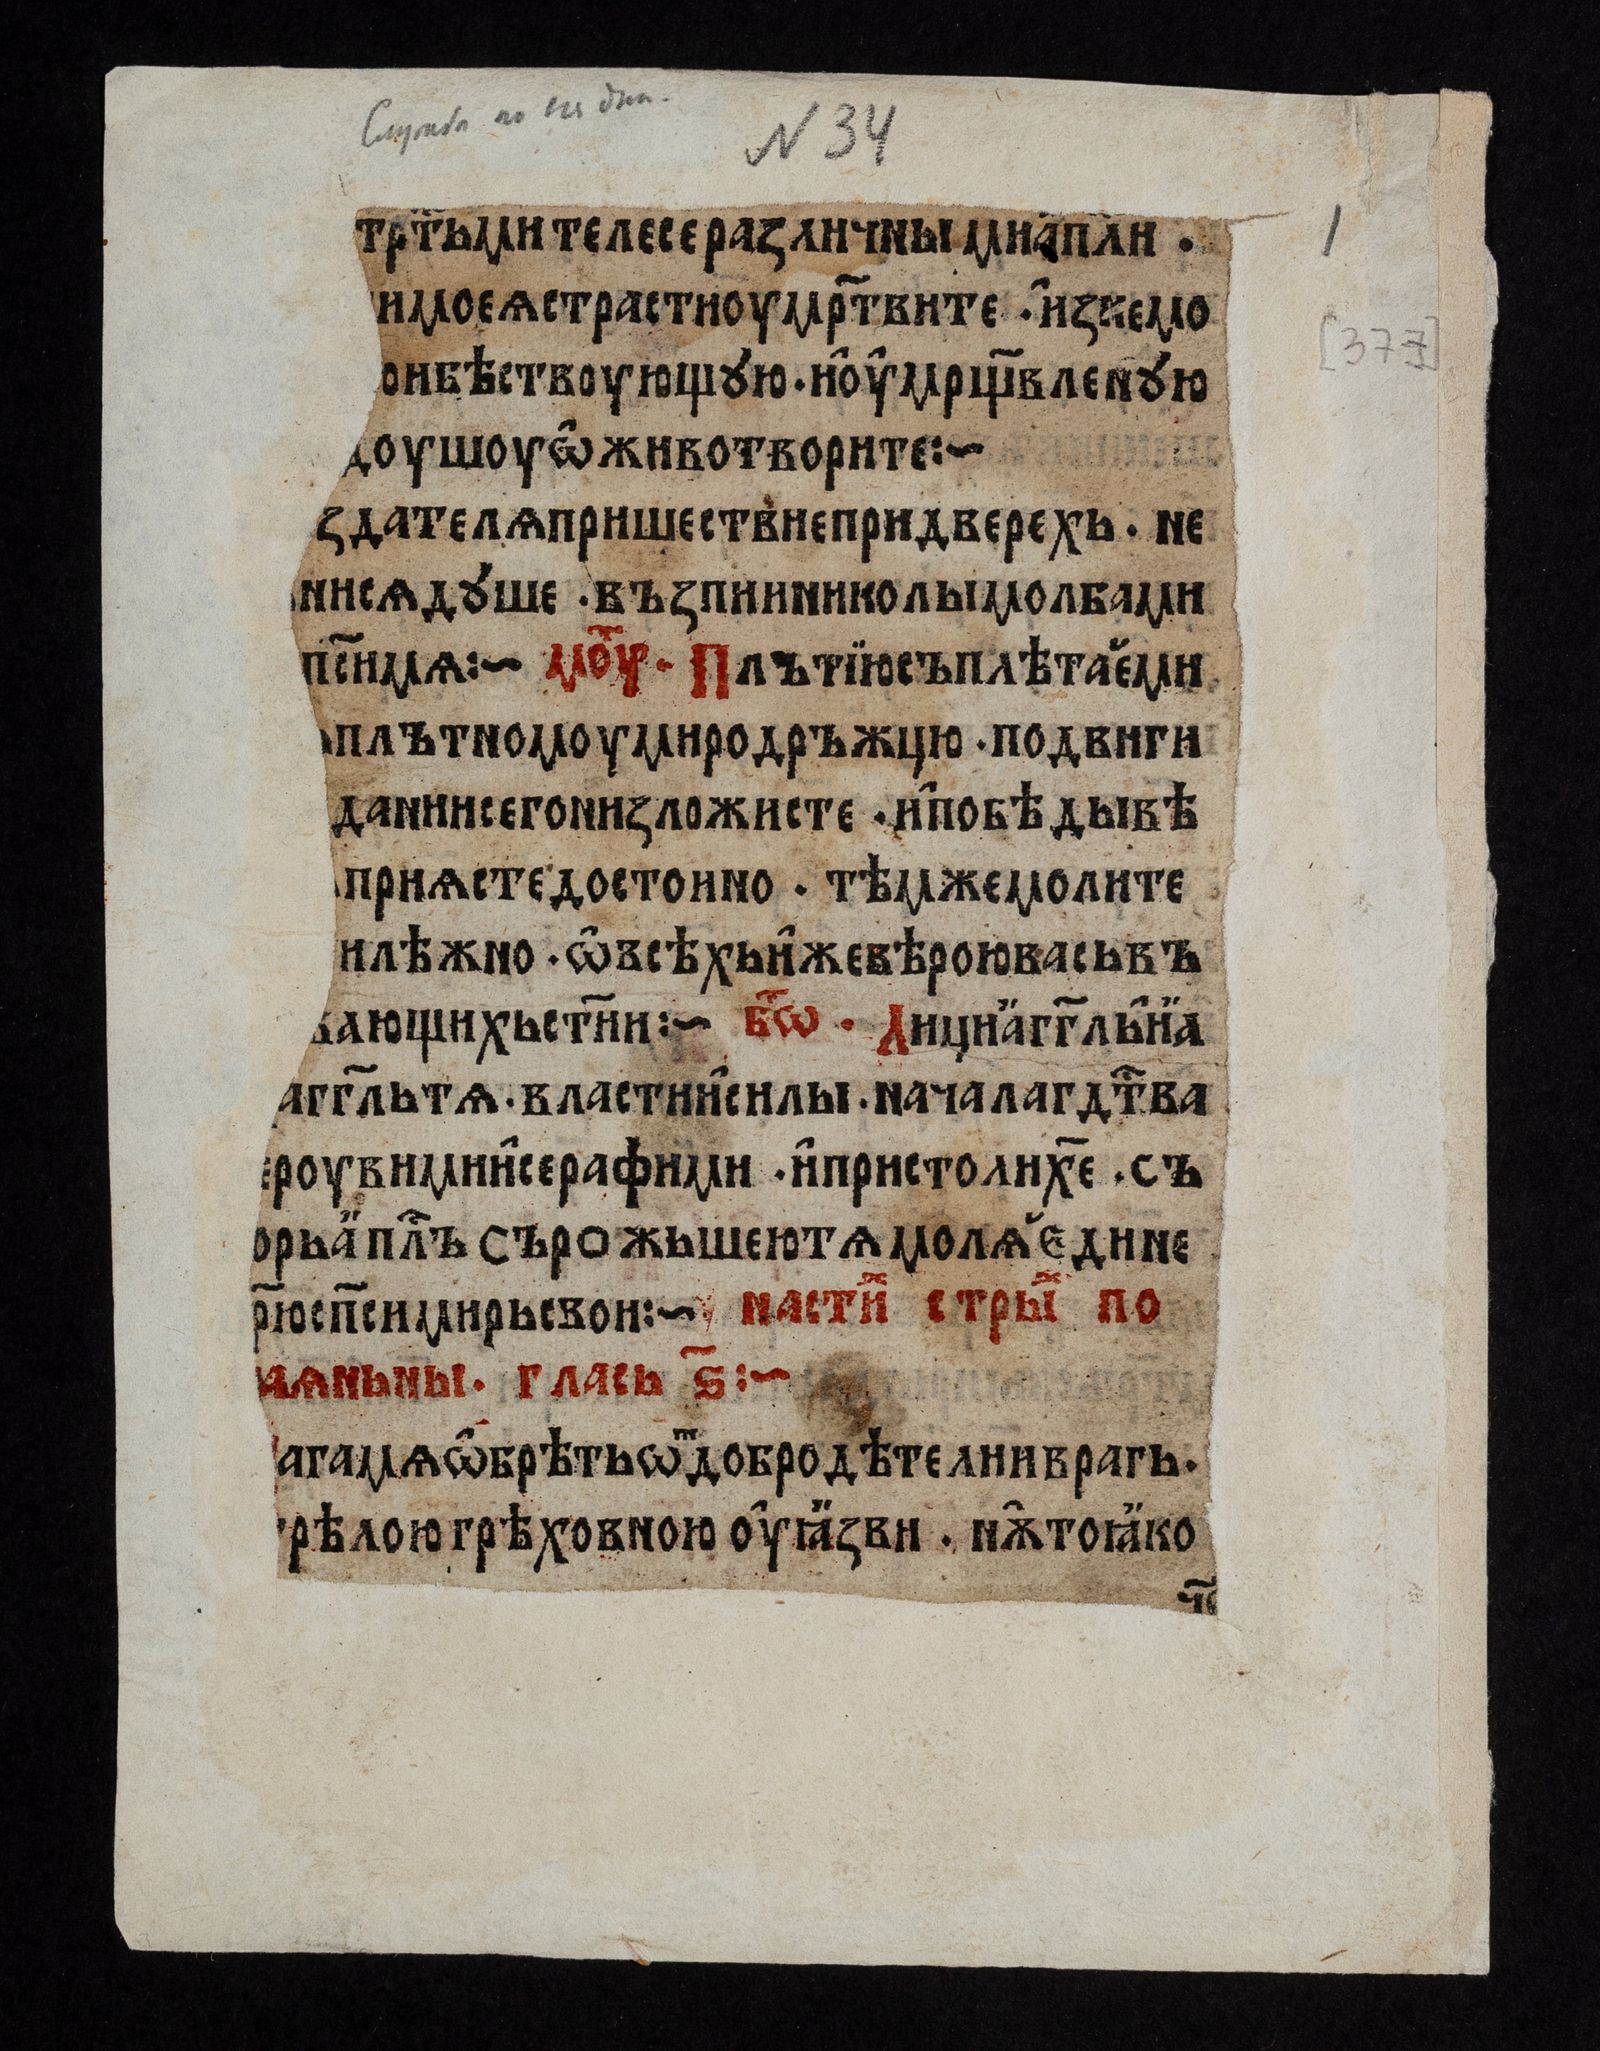 N 34
1
[377]
трт҃ьми телесе различными ап҃ли ·
имоеѧ страсти оумр҃твите · и҆ зкемо
онбѣствоующꙋю · и҆ оу҆мрщ҃вленꙋю
доушоу ѡ҆животворите :~
здателѧ пришествие при дверехь · не
нисѧ дꙋше · въз пии николы молбами
пс҃и мѧ :~ мо҃у · Плътїю съплѣтаеми
плътномоу миродръжцю · подвиги
дании сего низложисте · и҆ побѣды вѣ
приѧсте достоино · тѣмже молите
илѣжно · ѡ҆ всѣхь и҆же вѣрою вась въ
вающихь ст҃ии :~ б҃ѡ · Лици агг҃льїи а
агг҃ль тѧ · власти и҆ силы · начала гд҃тва
ероувими и҆ серафими · и҆ пристоли х҃е · съ
орь ап҃лъ съ рожьшею тѧ молѧ едине
р҃ю сп҃си мирь свои :~ на ст҃и стр҃ы по
аѧньны · глась ѕ҃ :~
ага мѧ ѡ҆брѣть ѿ добродѣтелии врагь ·
рѣлою грѣховною оу҆ꙗзви · нѫ то ꙗко